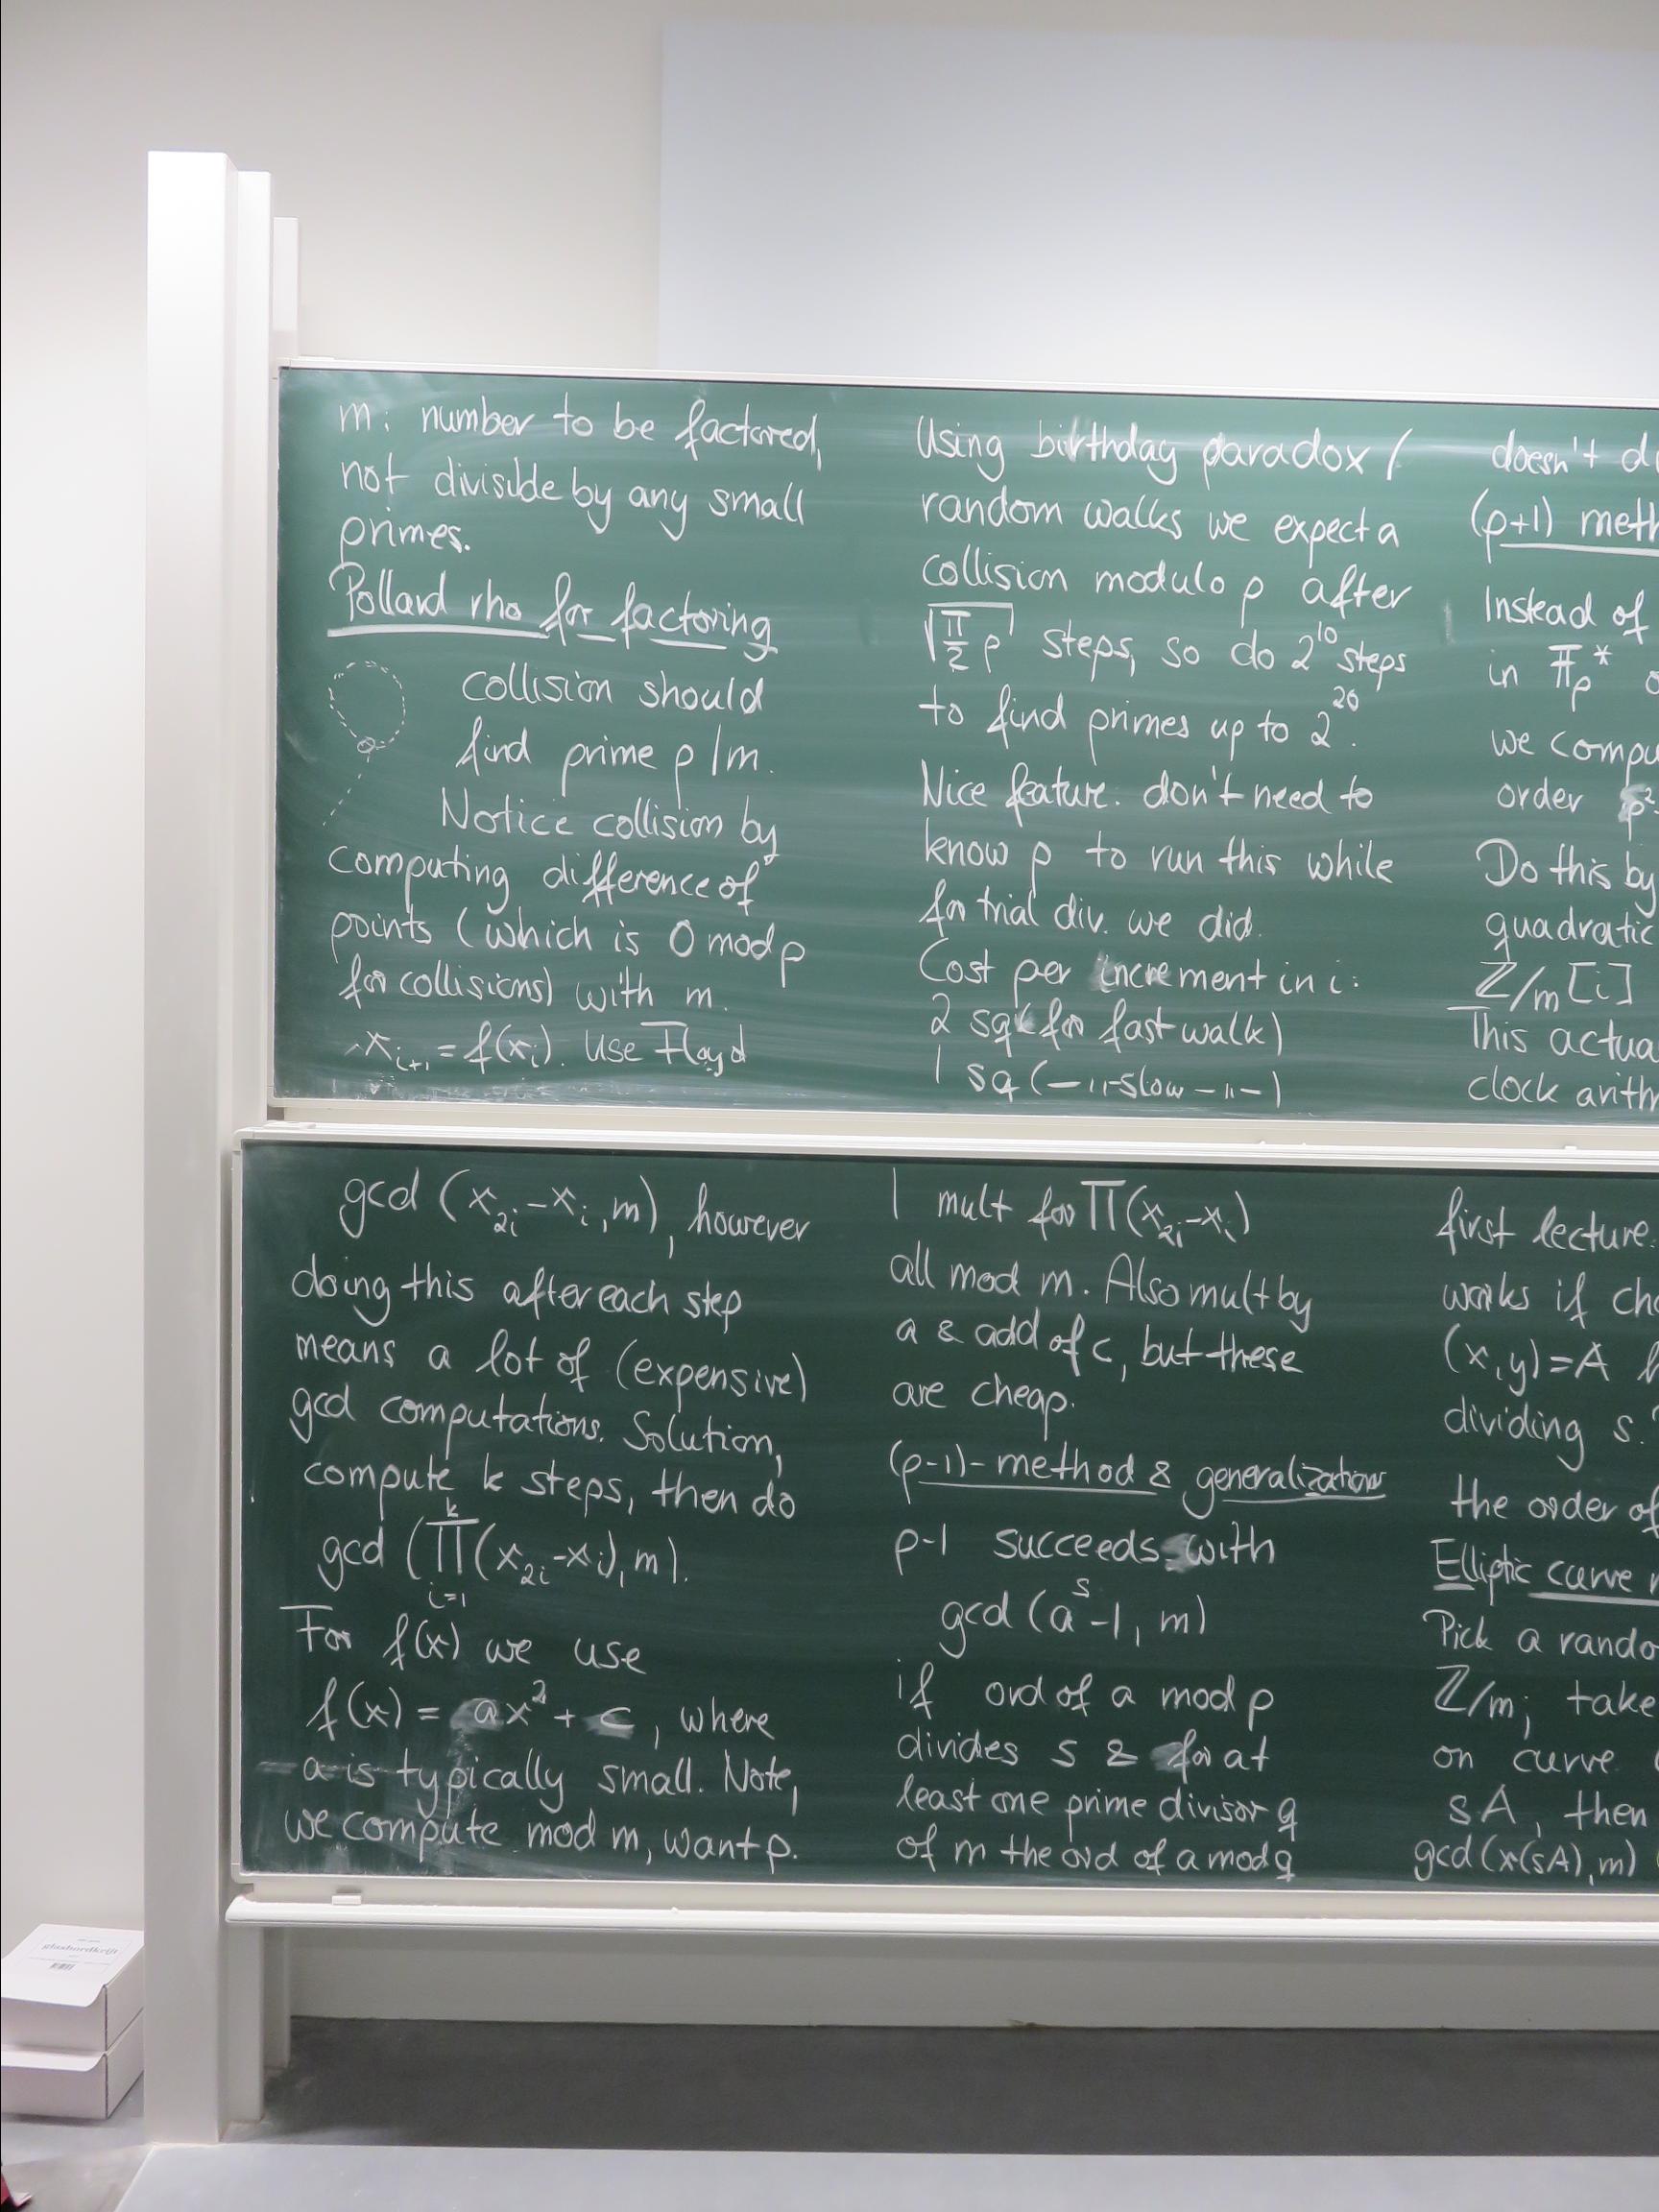 m: number to be factored,
not divisible by any small
primes.
Pollard rho for factoring
collision should
find prime p | m.
Notice collision by
computing difference of
points (which is 0 mod p
for collisions) with m.
x_{i+1} = f(x_i). Use Floyd
gcd (x_{2i} - x_i, m), however
doing this after each step
means a lot of (expensive)
gcd computations. Solution,
compute k steps, then do
gcd (∏_{i=1}^{k} (x_{2i} - x_i), m).
For f(x) we use
f(x) = ax² + c, where
a is typically small. Note,
we compute mod m, want p.
Using birthday paradox /
random walks we expect a
collision modulo p after
√(π/2 p) steps, so do 2^{10} steps
to find primes up to 2^{20}.
Nice feature: don't need to
know p to run this while
for trial div. we did.
Cost per increment in i:
2 sq (for fast walk)
1 sq (—"—slow —"—)
1 mult for ∏(x_{2i} - x_i)
all mod m. Also mult by
a & add of c, but these
are cheap.
(p-1)-method & generalizations
p-1 succeeds with
gcd (a^s - 1, m)
if ord of a mod p
divides s & for at
least one prime divisor q
of m the ord of a mod q
doesn't
(p+1)
Instead of
in 𝔽_p^*
we
order
Do this by
quadratic
ℤ/m [i]
This
clock
first lecture.
works if
(x,y)=A
dividing s.
the order of
Elliptic curve
Pick a
ℤ/m; take
on curve
sA, then
gcd (x(sA), m)
glasbordkrijt